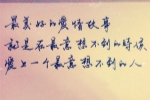 最美好的愛情故事
就是在最意想不到的時候
愛上一個最意想不到的人